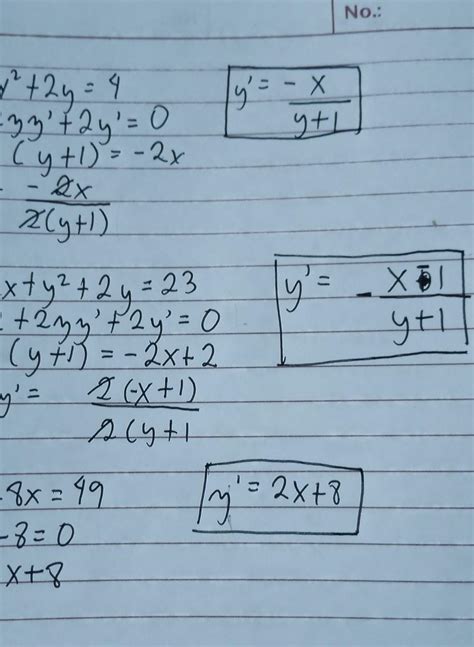 No.:
y² + 2y = 4
2yy' + 2y' = 0
(y+1) = -2x
-2x
2(y+1)
y' = -x
y+1
x + y² + 2y = 23
+ 2yy' + 2y' = 0
(y+1) = -2x + 2
y' = 2(-x+1)
2(y+1
y' = - x-1
y+1
-8x = 49
-8 = 0
x+8
y' = 2x+8